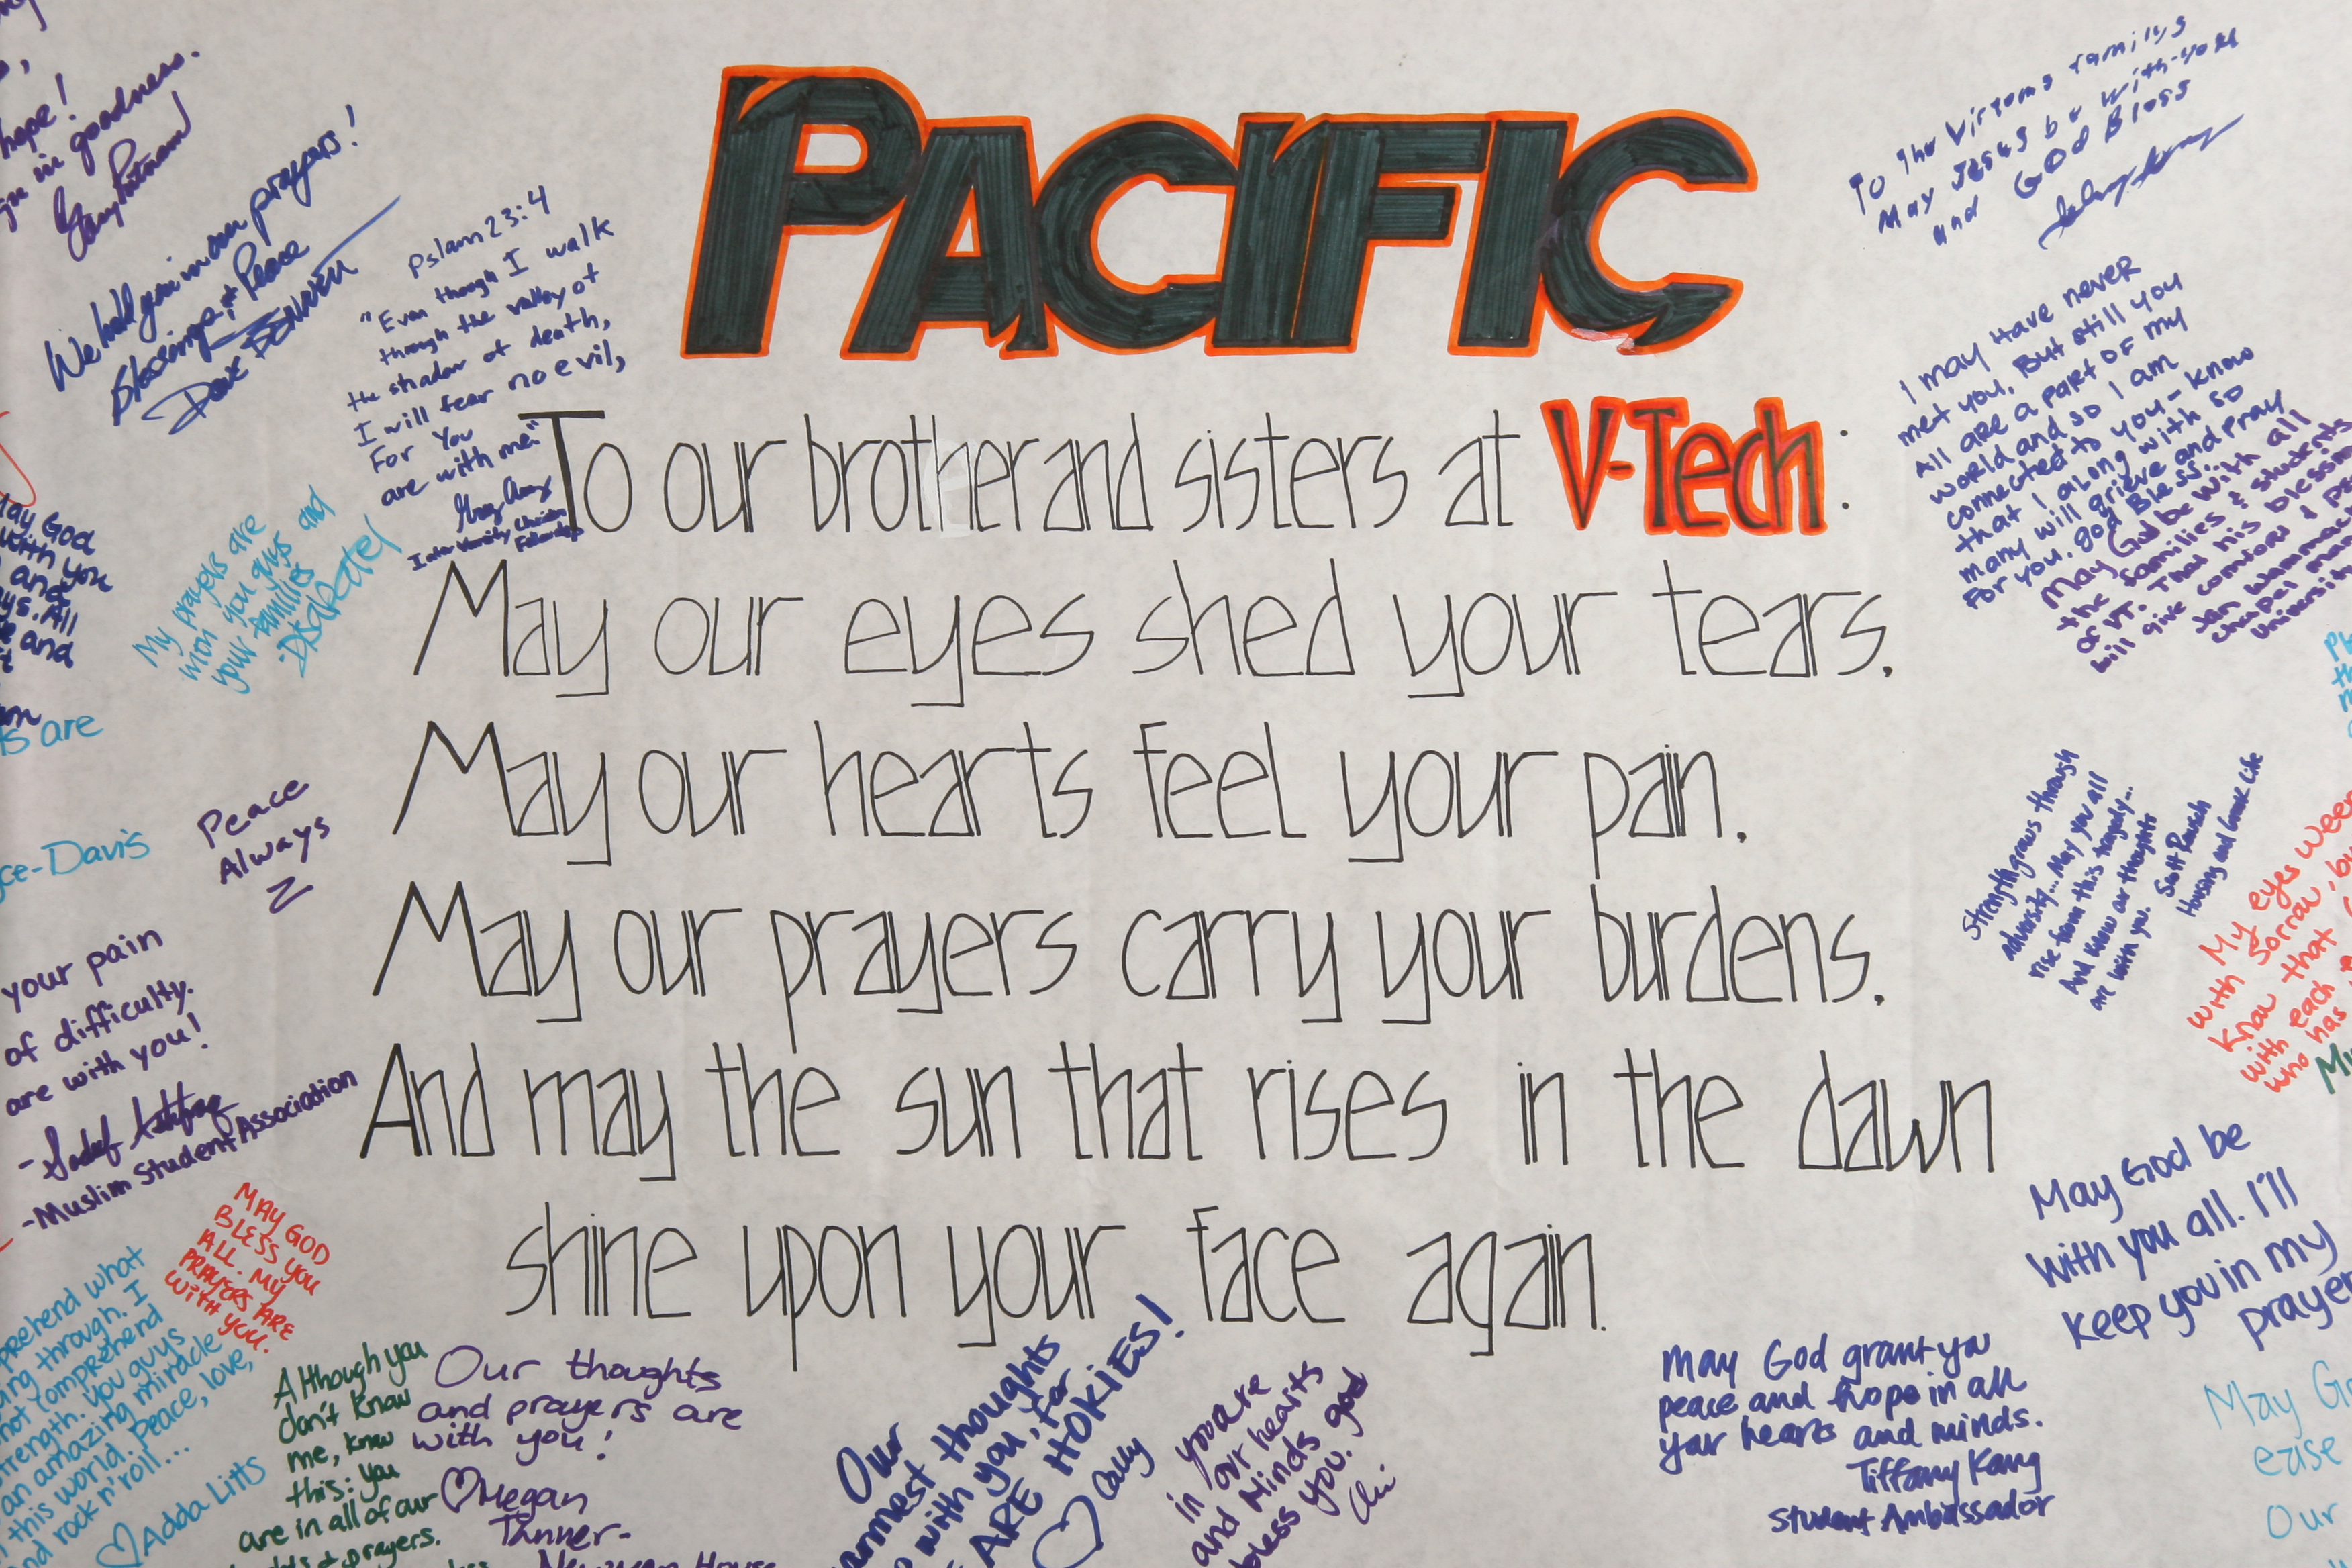 PACIFIC
To our brother and sisters at V-Tech:
May our eyes shed your tears.
May our hearts feel your pain.
May our prayers carry your burdens.
And may the sun that rises in the dawn
shine upon your face again.
hope!
in goodness.
We hold you in our prayers!
Blessings & Peace
Pslam 23:4
"Even though I walk
through the valley of
the shadow of death,
I will fear no evil,
For You
are with me."
Inter Varsity Christian
Fellowship
May God
with you
and
All
and
My prayers are
with you guys and
your families
are
Peace
Always
Z
ce-Davis
your pain
of difficulty.
are with you!
-Muslim Student Association
MAY GOD
BLESS YOU
ALL. MY
PRAYERS ARE
WITH YOU.
prehend what
ing through. I
not comprehend
strength. You guys
an amazing miracle
this world. Peace, love,
and rock n' roll...
♡Adda Litts
Although you
don't know
me, know
this: you
are in all of our
& prayers.
Our thoughts
and prayers are
with you!
♡Megan
Tanner-
Newman House
Our
warmest thoughts
with you, for
ARE HOKIES!
♡ Cally
you are
in our hearts
and Minds god
bless you.
May God grant you
peace and hope in all
your hearts and minds.
Tiffany Kang
Student Ambassador
To the Virtoms familys
May Jesus be with-you
and God Bless
I may have never
met you, But still you
All are a part of my
world and so I am
connected to you - know
that I along with so
many will grieve and pray
for you. god Bless.
May God be with all
the families & students
of VT. That his blessing
will give comfort &
Jan
Chapel
Universit
Strength grows through
adversity... May you all
rise from this tragedy...
And know our thoughts
are with you.
Scott Rausch
Housing and Greek Life
My eyes weep
with sorrow, bu
know that
with each
who has
My
May God be
with you all. I'll
keep you in my
prayer
May G
ease
Our